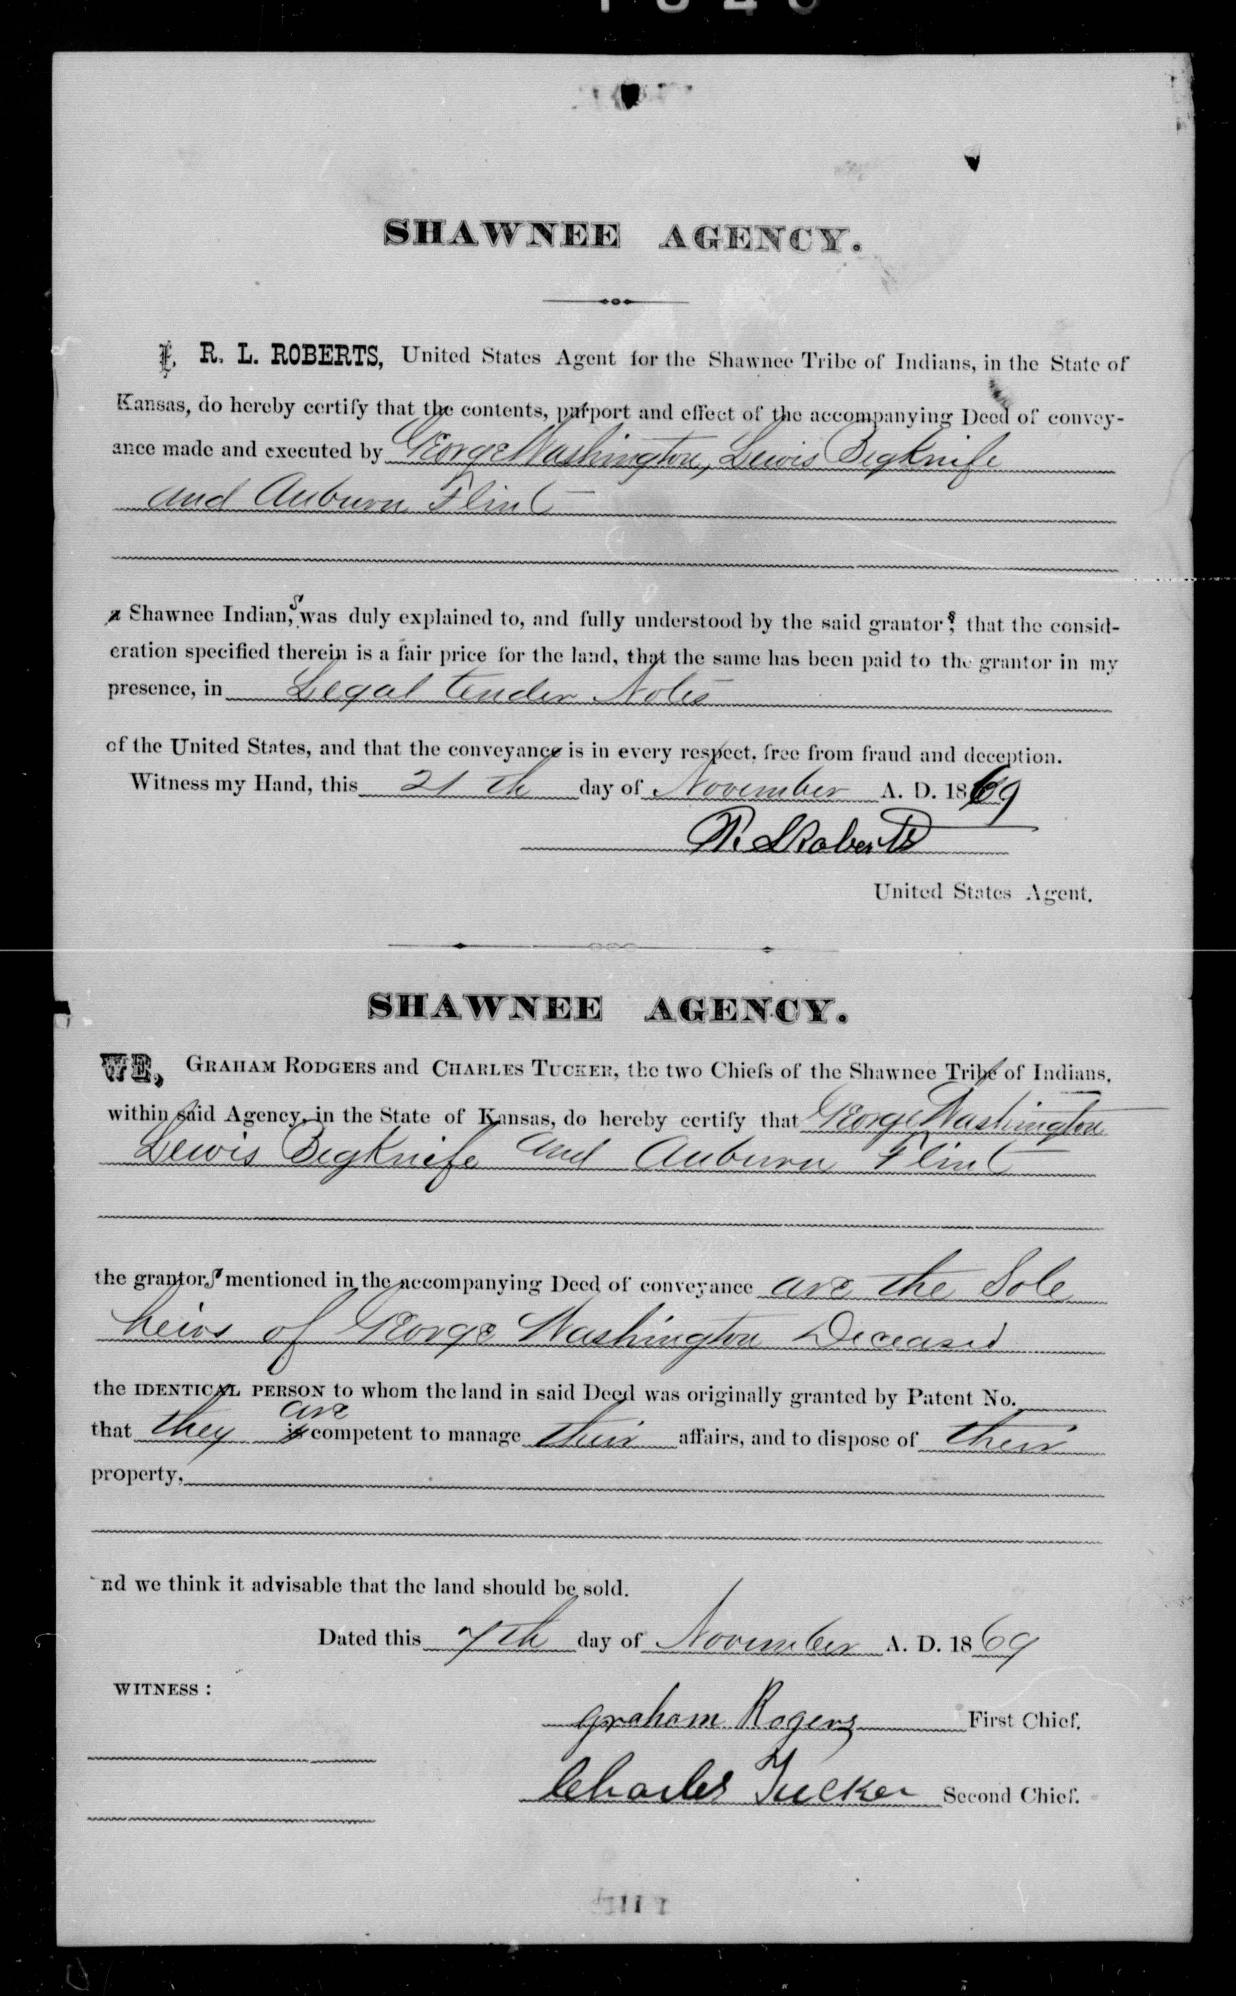 SHAWNEE AGENCY.
I, R. L. ROBERTS, United States Agent for the Shawnee Tribe of Indians, in the State of
Kansas, do hereby certify that the contents, purport and effect of the accompanying Deed of convey-
ance made and executed by George Washington, Lewis Bigknife
and Auburn Flint
a Shawnee Indians, was duly explained to, and fully understood by the said grantors; that the consid-
eration specified therein is a fair price for the land, that the same has been paid to the grantor in my
presence, in Legal tender Notes
of the United States, and that the conveyance is in every respect, free from fraud and deception.
Witness my Hand, this 21th day of November A. D. 1869
R. L Roberts
United States Agent.
SHAWNEE AGENCY.
WE, GRAHAM RODGERS and CHARLES TUCKER, the two Chiefs of the Shawnee Tribe of Indians,
within said Agency, in the State of Kansas, do hereby certify that George Washington
Lewis Bigknife and Auburn Flint
the grantors mentioned in the accompanying Deed of conveyance are the Sole
heirs of George Washington Deceased
the IDENTICAL PERSON to whom the land in said Deed was originally granted by Patent No.
are
that they is competent to manage their affairs, and to dispose of their
property,
nd we think it advisable that the land should be sold.
Dated this 7th day of November A. D. 1869
WITNESS:
graham Rogers First Chief.
Charles Tucker Second Chief.